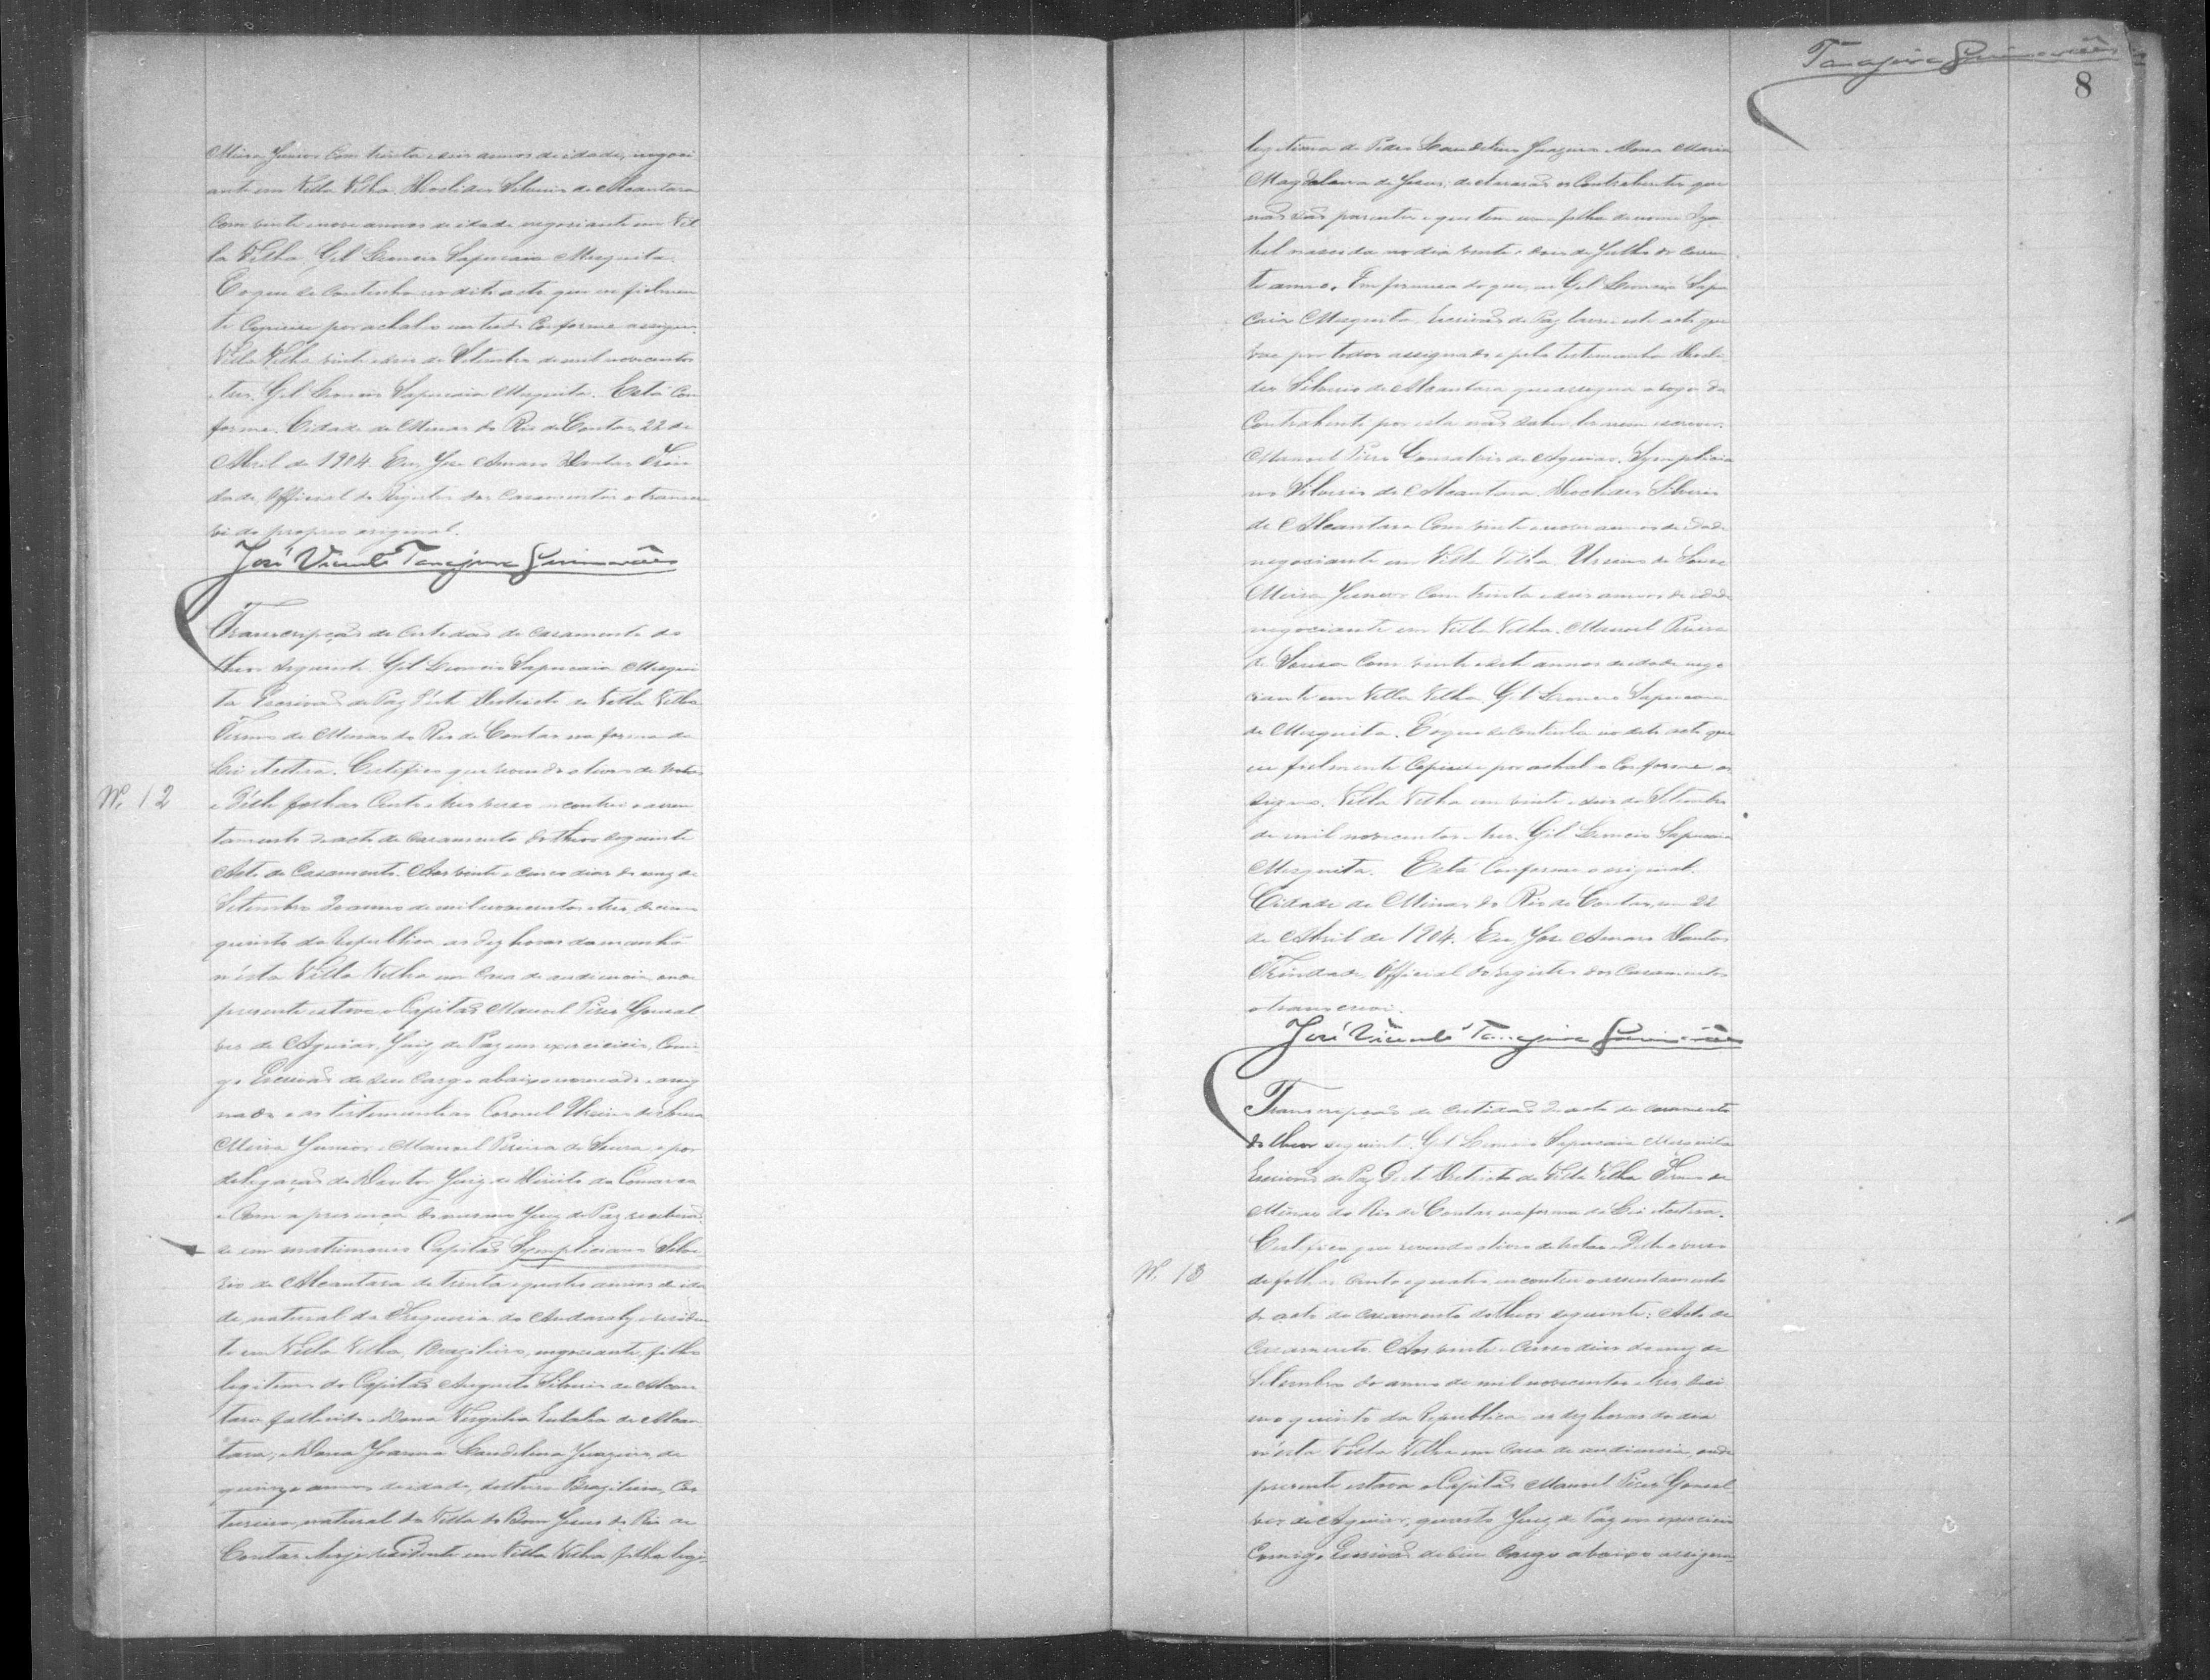 Meira Junior com trinta e seis annos de idade, negoci
ante em Villa Velha. Deoclides Silverio de Alcantara
com vinte e nove annos de idade negociante em Vil
la Velha, Gil Leoncio Sapucaia Mesquita.
E o que se continha no dito acto que eu fielmen
te copiei e por achal o em tudo conforme assigno.
Villa Velha vinte e seis de Setembro de mil novecentos
e tres. Gil Leoncio Sapucaia Mesquita. Está con
forme. Cidade de Minas do Rio de Contas, 22 de
Abril de 1904. Eu, José Amaro Dantas Trin
dade, Official do Registro dos Casamentos o transcre
vi do proprio original.
José Vicente Tanajura Guimarães
Transcripção de Certidão de casamento do
theor seguinte. Gil Leoncio Sapucaia Mesqui
ta Escrivão de Paz d'este Districto de Villa Velha
Termo de Minas do Rio de Contas na forma da
Lei etcetera. Certifico que revendo o livro de notas
Nº 12
e d'elle folhas cento e tres verso encontrei o assen
tamento do acto de casamento do theor seguinte
Acto de Casamento. Aos vinte e cinco dias do mez de
Setembro do anno de mil novecentos e tres, decimo
quinto da Republica, as dez horas da manhã
n'esta Villa Velha em casa de audiencia, onde
presente estava o Capitão Manoel Pires Gonsal
ves de Aguiar, Juiz de Paz em exercicio, comi
go Escrivão de seu cargo abaixo nomeado e assig
nado e as testemunhas Coronel Ursino de Souza
Meira Junior e Manoel Pereira de Souza e por
delegação do Doutor Juiz de Direito da Comarca
e com a presença do mesmo Juiz de Paz receberão
se em matrimonio Capitão Sympliciano Silve
rio de Alcantara de trinta e quatro annos de ida
de, natural da Freguesia do Andarahy e residen
te em Villa Velha, Brazileiro, negociante, filho
legitimo do Capitão Augusto Silverio de Alcan
tara fallecido e Dona Virginia Eulalia de Alcan
tara; e Dona Joanna Laudelina Juazeiro, de
quinze annos de idade, solteira Brazileira, Cos
tureira, natural da Villa do Bom Jesus do Rio de
Contas hoje residente em Villa Velha filha legi
Tanajura Guimarães
8
legitima de Pedro Laudelino Juazeiro e Dona Maria
Magdalena de Jesus; declararão os Contrahentes que
não são parentes e que tem uma filha de nome Iza
bel nascida no dia vinte e dois de Julho do corren
te anno. Em firmeza do que, eu Gil Leoncio Sapu
caia Mesquita, Escrivão de Paz lavrei este acto que
vae por todos assignado e pela testemunha Deocli
des Silverio de Alcantara que assigna a rogo da
Contrahente por esta não saber ler nem escrever.
Manoel Pires Gonsalves de Aguiar. Symplicia
no Silverio de Alcantara. Deoclides Silverio
de Alcantara com vinte e nove annos de idade
negociante em Villa Velha. Ursino de Souza
Meira Junior com trinta e seis annos de idade
negociante em Villa Velha. Manoel Pereira
de Souza com vinte e sete annos de idade nego
ciante em Villa Velha. Gil Leoncio Sapucaia
de Mesquita. E o que se continha no dito acto que
eu fielmente copiei e por achal o conforme as
signo. Villa Velha em vinte e seis de Setembro
de mil novecentos e tres. Gil Leoncio Sapucaia
Mesquita. Está conforme o original.
Cidade de Minas do Rio de Contas, em 22
de Abril de 1904. Eu, José Amaro Dantas
Trindade, Official do registro dos Casamentos
o transcrevi.
José Vicente Tanajura Guimarães
Transcripção de certidão do acto de casamento
do theor seguinte. Gil Leoncio Sapucaia Mesquita
Escrivão de Paz d'este Districto de Villa Velha Termo de
Minas do Rio de Contas, na forma da Lei etcetera.
Certifico que revendo o livro de notas e d'elle o verso
Nº 13
de folhas cento e quatro encontrei o assentamento
do acto de casamento do theor seguinte: Acto de
Casamento. Aos vinte e cinco dias do mez de
Setembro do anno de mil novecentos e tres deci
mo quinto da Republica, as dez horas do dia
n'esta Villa Velha em casa de audiencia, onde
presente estava o Capitão Manoel Pires Gonsal
ves de Aguiar, quarto Juiz de Paz em exercicio
Comigo Escrivão de seu Cargo abaixo assigna